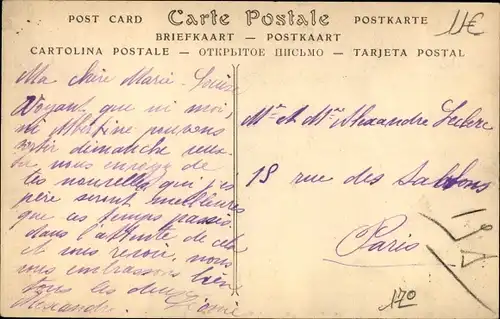 POST CARD Carte Postale POSTKARTE
BRIEFKAART — POSTKAART
CARTOLINA POSTALE — ОТКРЫТОЕ ПИСЬМО — TARJETA POSTAL
11€
Ma chère Marie-Louise
Voyant que ni moi,
ni Albertine pouvons
sortir dimanche
nous
tes nouvelles que j'es
père seront meilleures
que ces temps passés
dans l'attente de cela
et vous revoir, nous
vous embrassons bien
tous les deux
Alexandre
Mr et Mme Alexandre Leclerc
18 rue des Sablons
Paris
170